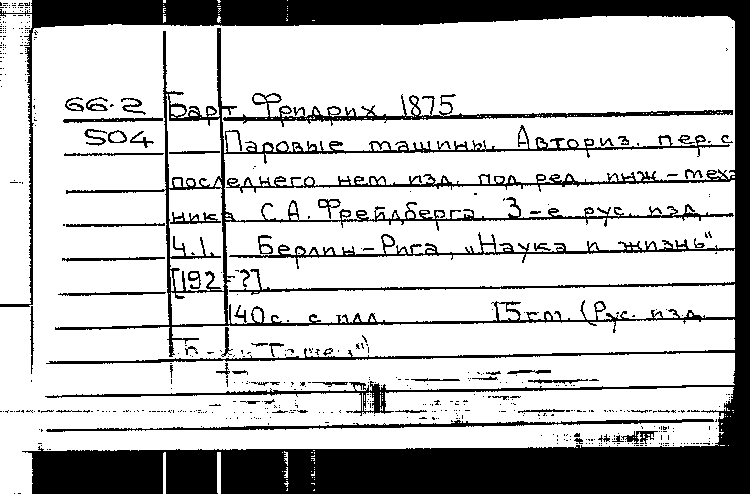 66.2 Барт, Фридрих, 1875.
S04 Паровые машины. Авториз. пер. с
последнего нем. изд. под ред. инж.-меха
ника С.А. Фрейдберга. 3-е рус. изд.
Ч.I. Берлин-Рига, „Наука и жизнь",
[192-?].
140с. с илл. 15cm. (Рус. изд.